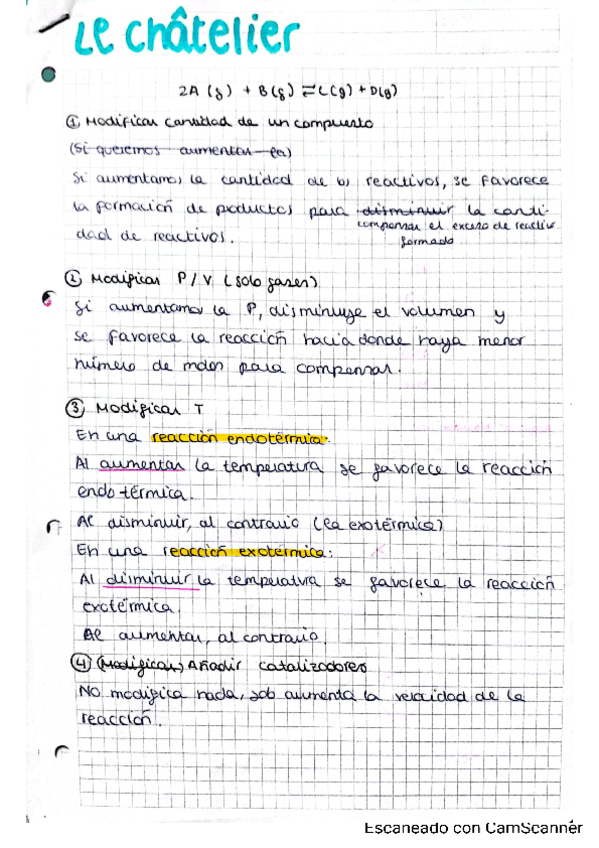 Le châtelier
2A (g) + B(g) ⇌ C(g) + D(g)
① Modificar cantidad de un compuesto
(Si queremos aumentar la)
Si aumentamos la cantidad de los reactivos, se favorece
la formación de productos para disminuir la canti-
compensar el exceso de reactivo
formado
dad de reactivos.
② Modificar P/V (solo gases)
Si aumentamos la P, disminuye el volumen y
se favorece la reacción hacia donde haya menor
número de moles para compensar.
③ Modificar T
En una reacción endotérmica:
Al aumentar la temperatura se favorece la reacción
endo-térmica.
Al disminuir, al contrario (la exotérmica)
En una reacción exotérmica:
Al disminuir la temperatura se favorece la reacción
exotérmica.
Al aumentar, al contrario.
④ (Modificar) Añadir catalizadores
No modifica nada, solo aumenta la velocidad de la
reacción.
Escaneado con CamScanner